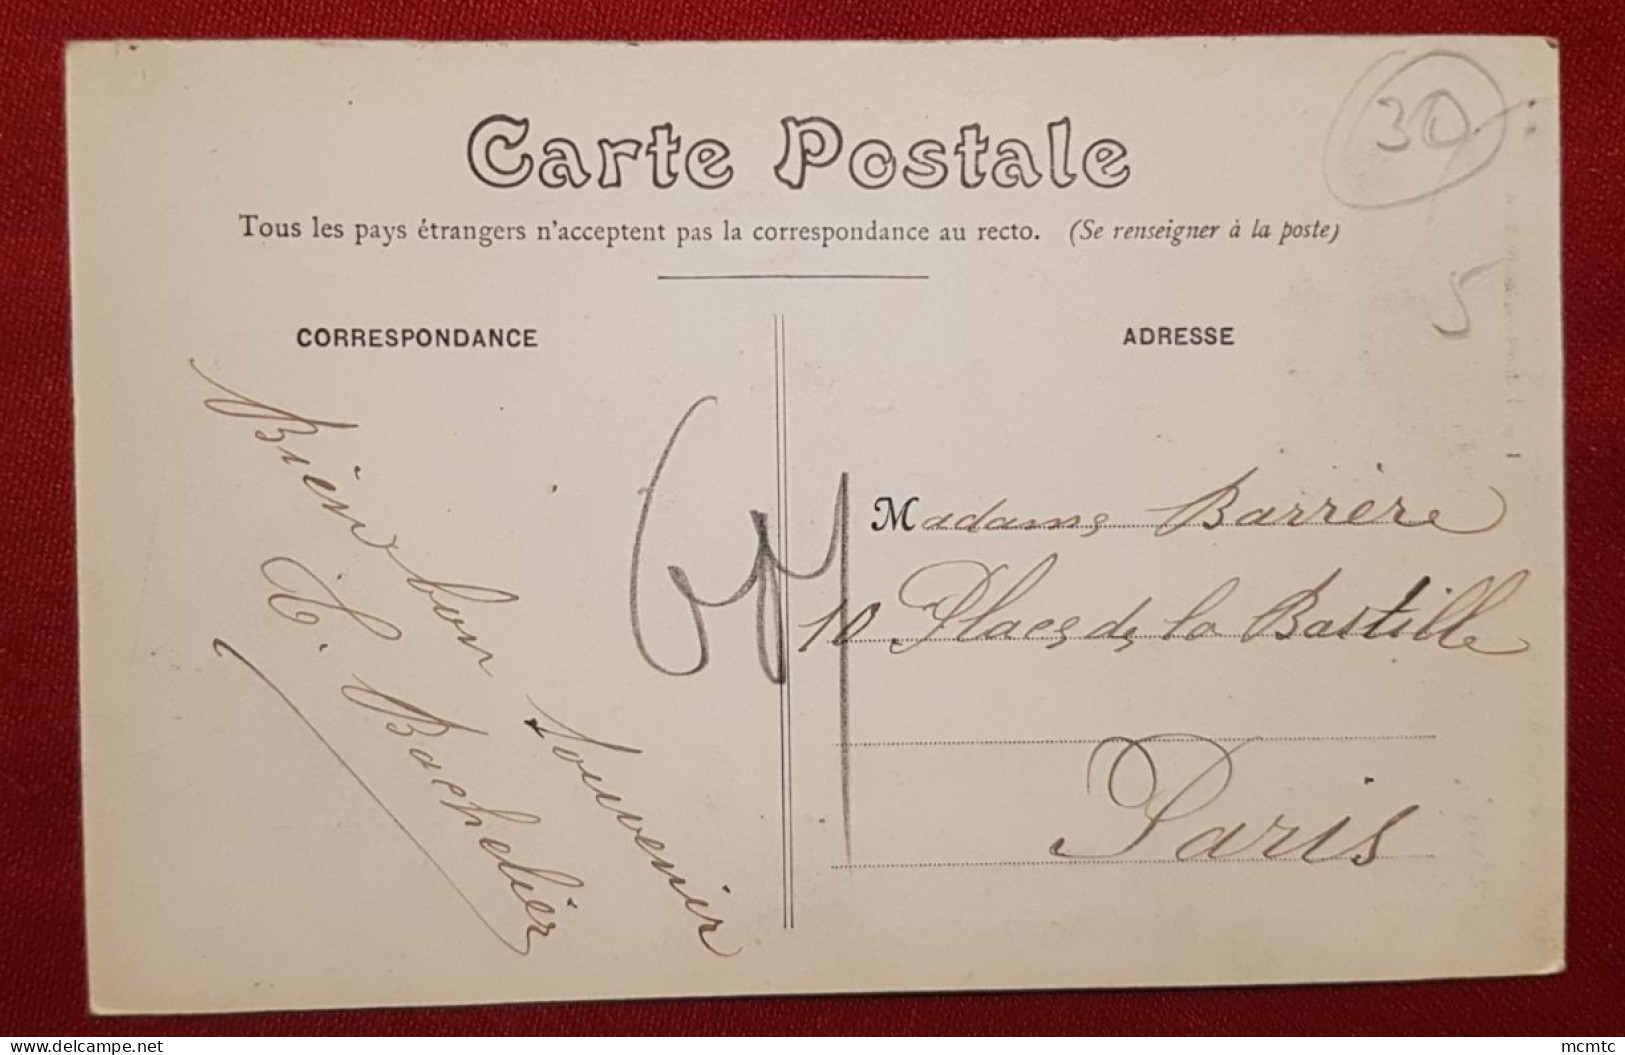 30
Carte Postale
Tous les pays étrangers n'acceptent pas la correspondance au recto. (Se renseigner à la poste)
5
CORRESPONDANCE
Bien bon souvenir
Bachelier
ADRESSE
Madame Barrère
10 Place de la Bastille
Paris
delcampe.net
mcmtc